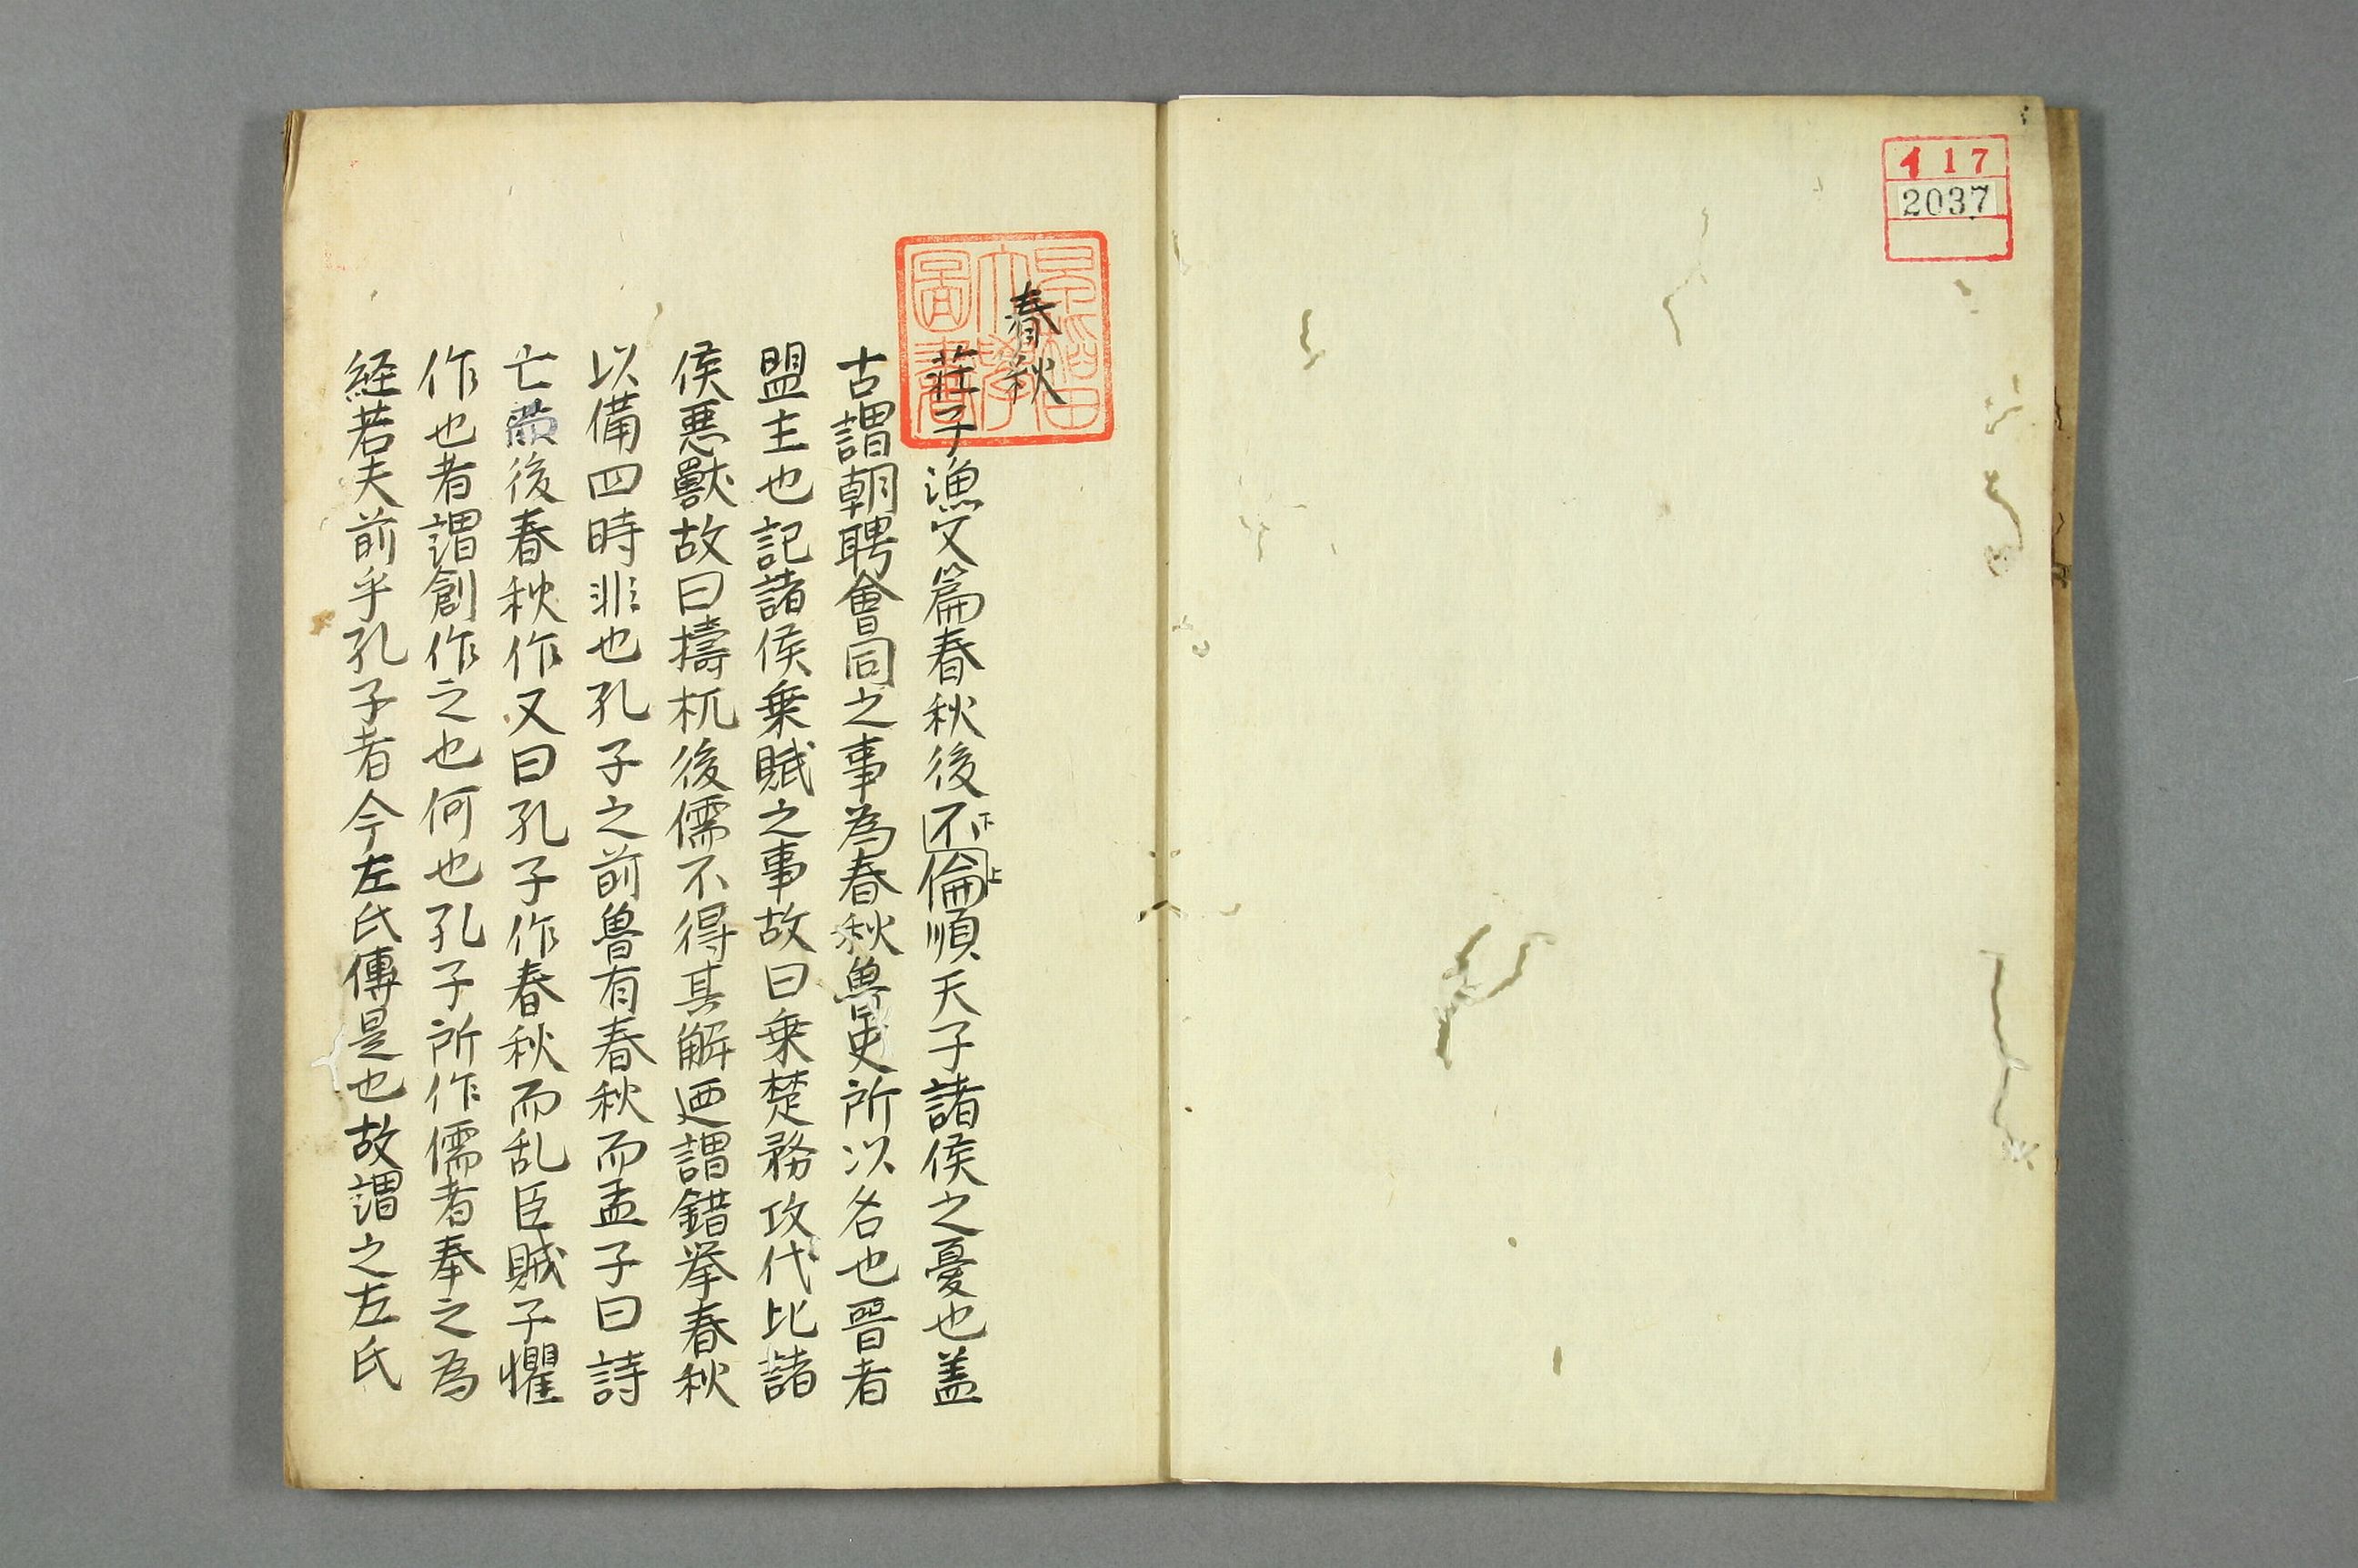 417
2037
早稲田大學圖書
春秋
莊子漁父篇春秋後不下倫上順天子諸侯之憂也盖
古謂朝聘會同之事為春秋魯史所以名也晉者
盟主也記諸侯乗賦之事故曰乗楚務攻代比諸
侯悪獸故曰擣杌後儒不得其解廼謂錯挙春秋
以備四時非也孔子之前魯有春秋而孟子曰詩
亡後春秋作又曰孔子作春秋而乱臣賊子懼
作也者謂創作之也何也孔子所作儒者奉之為
経若夫前乎孔子者今左氏傳是也故謂之左氏